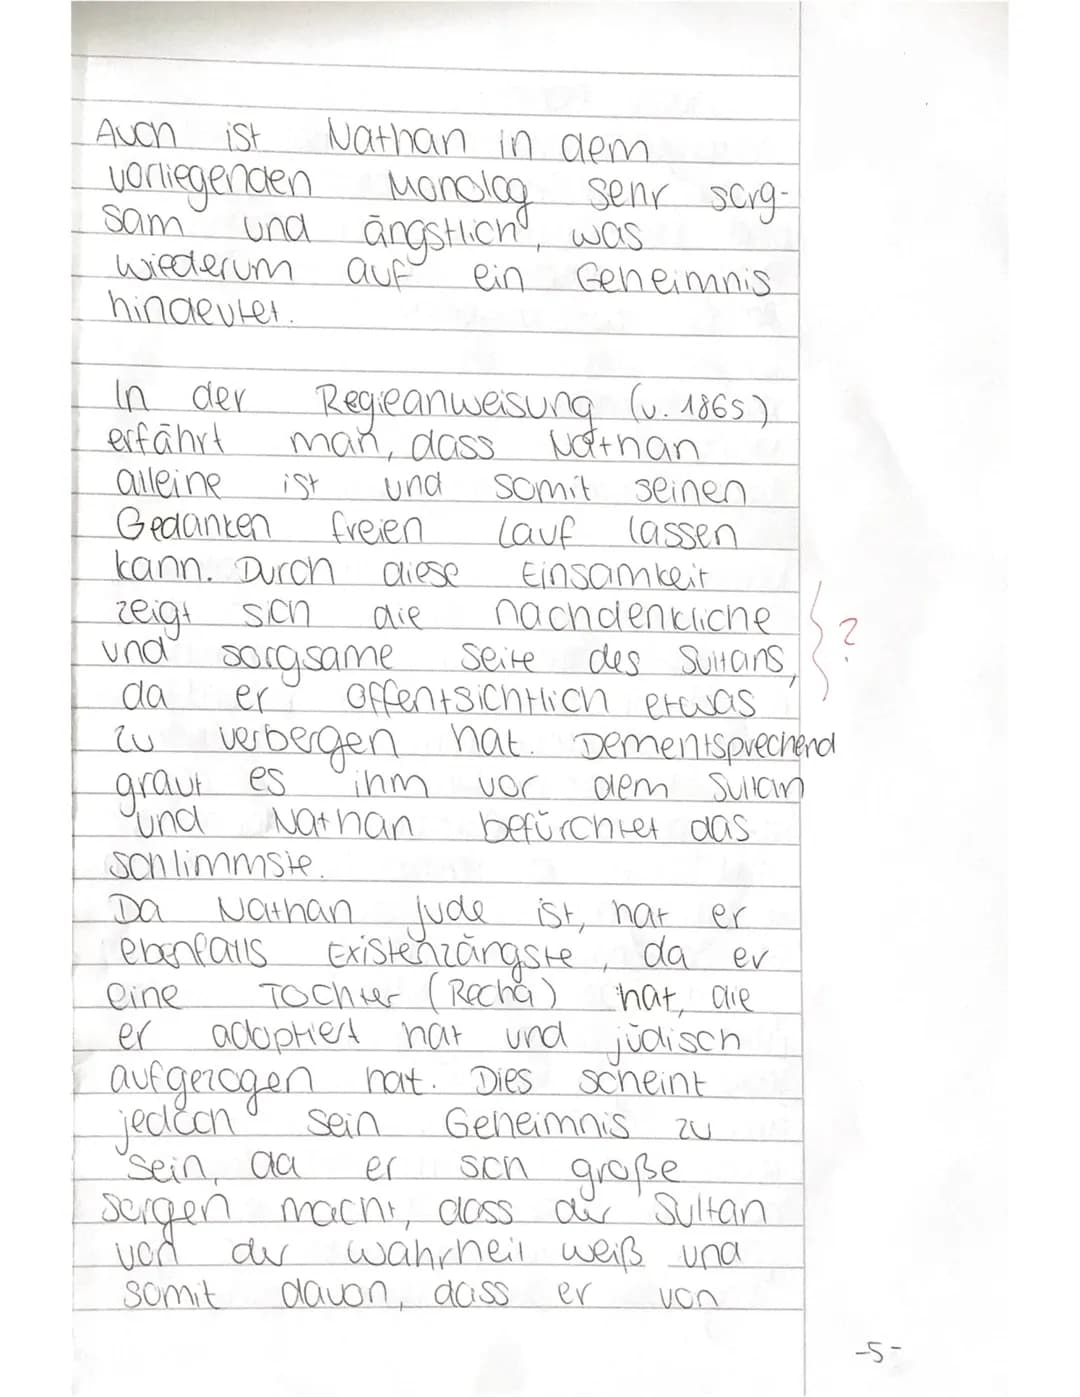 Auch ist Nathan in dem
vorliegenden Monolog sehr sorg-
sam und ängstlich, was
wiederum auf ein Geheimnis
hindeutet.
In der Regieanweisung (v. 1865)
erfährt man, dass Nathan
alleine ist und somit seinen
Gedanken freien Lauf lassen
kann. Durch diese Einsamkeit
zeigt sich die nachdenkliche
und sorgsame Seite des Sultans, ?
da er offentsichtlich etwas
zu verbergen hat. Dementsprechend
graut es ihm vor dem Sultan
und Nathan befürchtet das
schlimmste.
Da Nathan Jude ist, hat er
ebenfalls Existenzängste, da er
eine Tochter (Recha) hat, die
er adoptiert hat und jüdisch
aufgezogen hat. Dies scheint
jedoch sein Geheimnis zu
sein, da er sich große
sorgen macht, dass der Sultan
von der Wahrheit weiß und
somit davon, dass er von
-5-